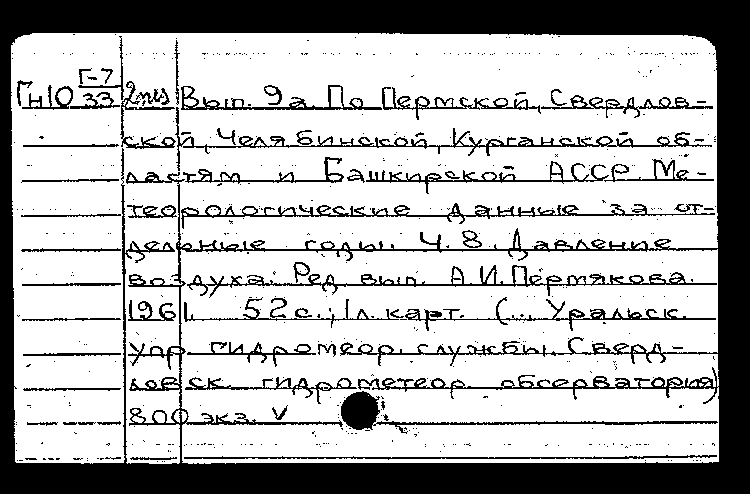 Гн10 Г-7/33 2 экз Вып. 9а. По Пермской, Свердлов-
ской, Челябинской, Курганской об-
ластям и Башкирской АССР. Ме-
теорологические данные за от-
дельные годы. Ч. 8. Давление
воздуха. Ред. вып. А.И. Пермякова.
1961. 52 с.; 1 л. карт. (... Уральск.
упр. гидрометеор. службы. Сверд-
ловск. гидрометеор. обсерватория)
800 экз. V